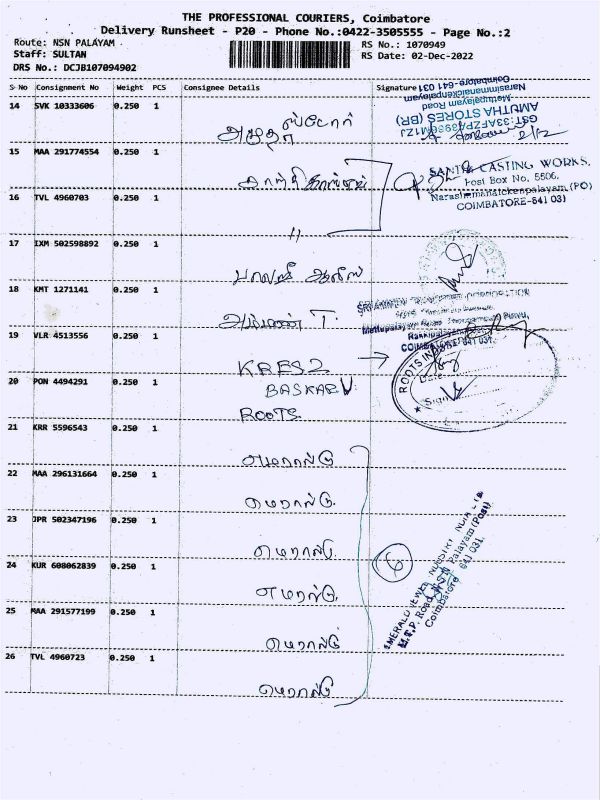 THE PROFESSIONAL COURIERS, Coimbatore
Delivery Runsheet - P20 - Phone No.:0422-3505555 - Page No.:2
Route: NSN PALAYAM
RS No.: 1070949
Staff: SULTAN
RS Date: 02-Dec-2022
DRS No.: DCJB107094902
S No Consignment No Weight PCS Consignee Details Signature
14 SVK 10333606 0.250 1
அமுதா ஸ்டோர்
AMUTHA STORES (BR)
Mettupalayam Road
Coimbatore-641 031
15 MAA 291774554 0.250 1
சாந்தி காஸ்டிங்
SANTHI CASTING WORKS,
Post Box No, 5506,
Narasimmanaickenpalayam (PO)
COIMBATORE-641 031
16 TVL 4960703 0.250 1
"
17 IXM 502598892 0.250 1
பாலாஜி ஆயில்
18 KMT 1271141 0.250 1
T.
19 VLR 4513556 0.250 1
KRESZ
20 PON 4494291 0.250 1
BASKAR V
ROOTS
ROOTS
21 KRR 5596543 0.250 1
எமரால்டு
22 MAA 296131664 0.250 1
எமரால்டு
23 JPR 502347196 0.250 1
எமரால்டு
24 KUR 608062839 0.250 1
எமரால்டு
6
EMERALD JEWEL INDUSTRY INDIA LTD
M.T.P. Road, N.S.N Palayam (Post)
Coimbatore 641 031.
25 MAA 291577199 0.250 1
எமரால்டு
26 TVL 4960723 0.250 1
எமரால்டு